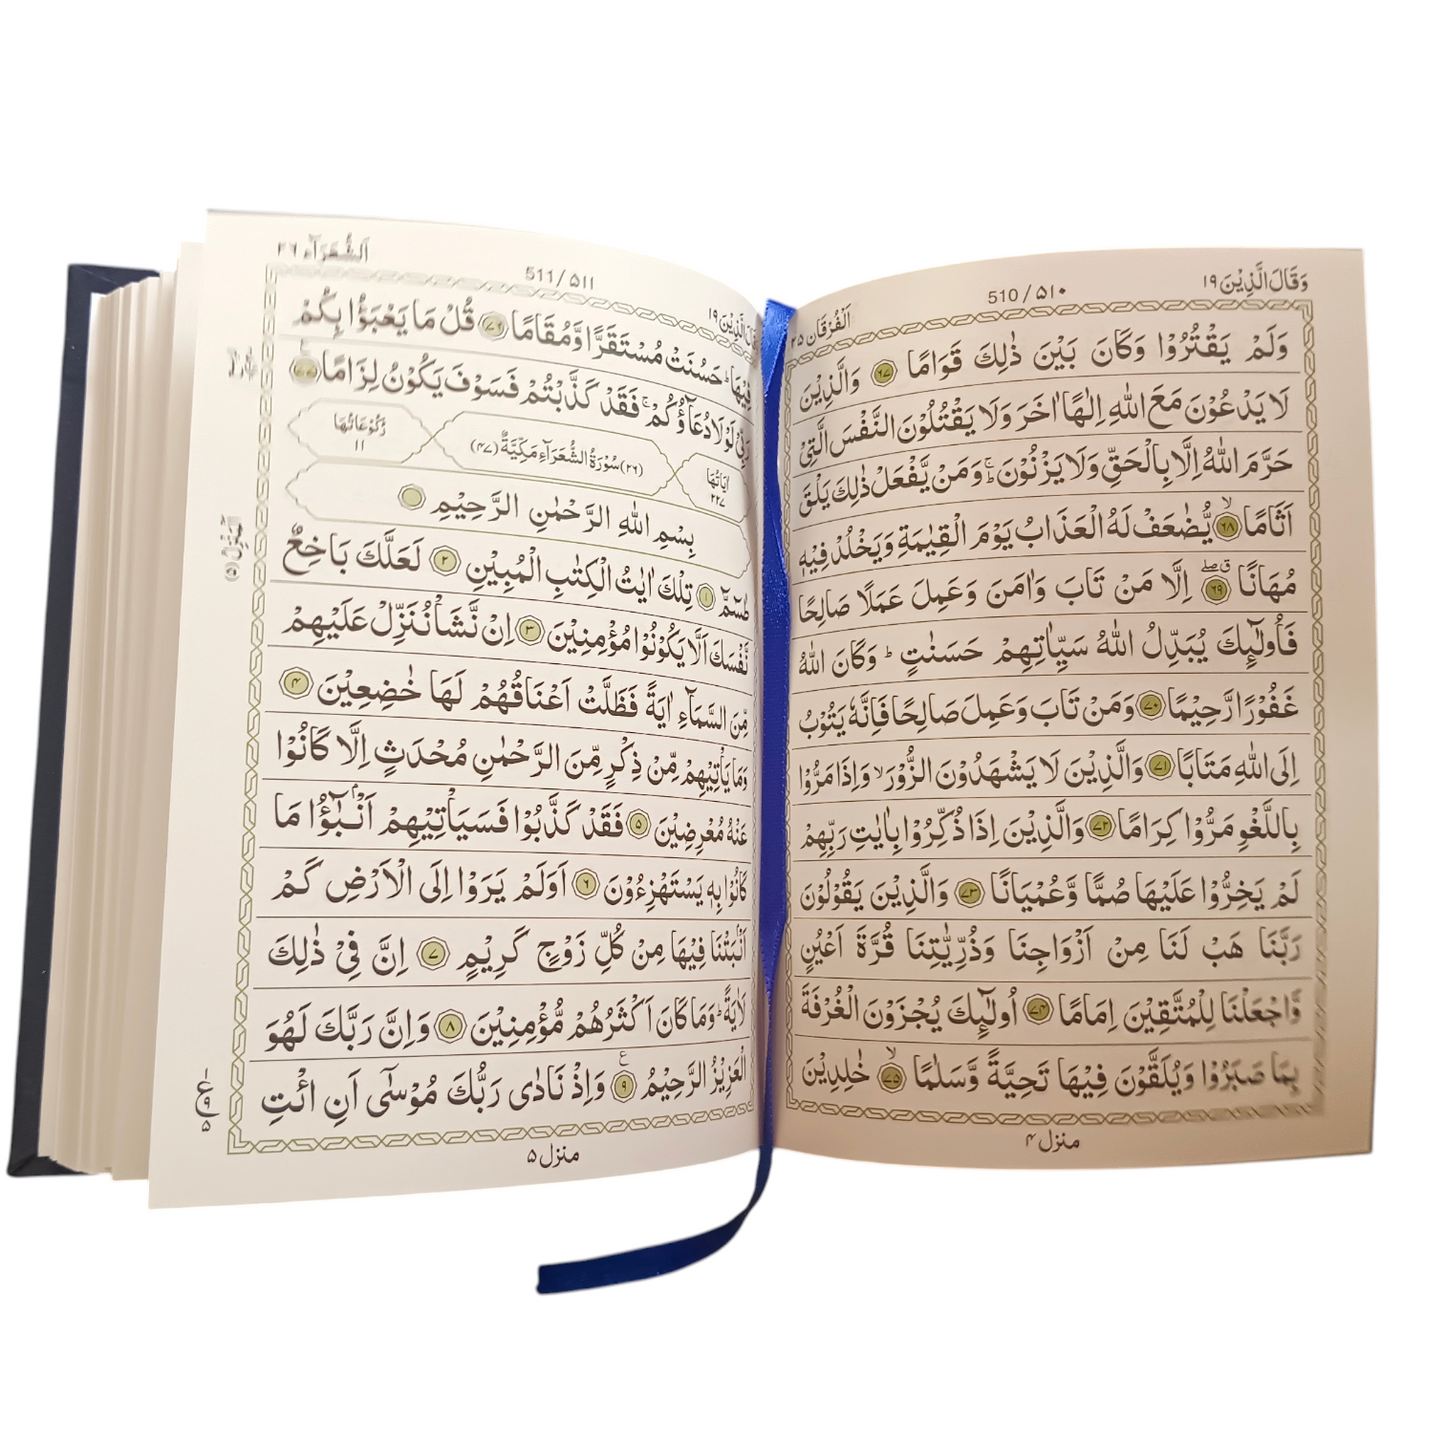 وَقَالَ الَّذِيْنَ ١٩
510 / ۵۱۰
اَلْفُرْقَان ٢٥
وَلَمْ يَقْتُرُوْا وَكَانَ بَيْنَ ذٰلِكَ قَوَامًا ۶۷ وَالَّذِيْنَ
لَا يَدْعُوْنَ مَعَ اللّٰهِ اِلٰهًا اٰخَرَ وَلَا يَقْتُلُوْنَ النَّفْسَ الَّتِيْ
حَرَّمَ اللّٰهُ اِلَّا بِالْحَقِّ وَلَا يَزْنُوْنَ ۚ وَمَنْ يَّفْعَلْ ذٰلِكَ يَلْقَ
اَثَامًا ۶۸ ۙ يُّضٰعَفْ لَهُ الْعَذَابُ يَوْمَ الْقِيٰمَةِ وَيَخْلُدْ فِيْهٖ
مُهَانًا ۶۹ اِلَّا مَنْ تَابَ وَاٰمَنَ وَعَمِلَ عَمَلًا صَالِحًا
فَاُولٰٓئِكَ يُبَدِّلُ اللّٰهُ سَيِّاٰتِهِمْ حَسَنٰتٍ ؕ وَكَانَ اللّٰهُ
غَفُوْرًا رَّحِيْمًا ۷۰ وَمَنْ تَابَ وَعَمِلَ صَالِحًا فَاِنَّهٗ يَتُوْبُ
اِلَى اللّٰهِ مَتَابًا ۷۱ وَالَّذِيْنَ لَا يَشْهَدُوْنَ الزُّوْرَ ۙ وَاِذَا مَرُّوْا
بِاللَّغْوِ مَرُّوْا كِرَامًا ۷۲ وَالَّذِيْنَ اِذَا ذُكِّرُوْا بِاٰيٰتِ رَبِّهِمْ
لَمْ يَخِرُّوْا عَلَيْهَا صُمًّا وَّعُمْيَانًا ۷۳ وَالَّذِيْنَ يَقُوْلُوْنَ
رَبَّنَا هَبْ لَنَا مِنْ اَزْوَاجِنَا وَذُرِّيّٰتِنَا قُرَّةَ اَعْيُنٍ
وَّاجْعَلْنَا لِلْمُتَّقِيْنَ اِمَامًا ۷۴ اُولٰٓئِكَ يُجْزَوْنَ الْغُرْفَةَ
بِمَا صَبَرُوْا وَيُلَقَّوْنَ فِيْهَا تَحِيَّةً وَّسَلٰمًا ۷۵ ۙ خٰلِدِيْنَ
منزل ۴
وَقَالَ الَّذِيْنَ ١٩
511 / ۵۱۱
اَلشُّعَرَآء ٢٦
فِيْهَا ؕ حَسُنَتْ مُسْتَقَرًّا وَّمُقَامًا ۷۶ قُلْ مَا يَعْبَؤُا بِكُمْ
رَبِّيْ لَوْلَا دُعَآؤُكُمْ ۚ فَقَدْ كَذَّبْتُمْ فَسَوْفَ يَكُوْنُ لِزَامًا ۷۷
اٰيَاتُهَا ٢٢٧
(٢٦) سُوْرَةُ الشُّعَرَآءِ مَكِّيَّةٌ (۴۷)
رُكُوْعَاتُهَا ١١
بِسْمِ اللّٰهِ الرَّحْمٰنِ الرَّحِيْمِ
طٰسٓمّٓ ۱ تِلْكَ اٰيٰتُ الْكِتٰبِ الْمُبِيْنِ ۲ لَعَلَّكَ بَاخِعٌ
نَّفْسَكَ اَلَّا يَكُوْنُوْا مُؤْمِنِيْنَ ۳ اِنْ نَّشَاْ نُنَزِّلْ عَلَيْهِمْ
مِّنَ السَّمَآءِ اٰيَةً فَظَلَّتْ اَعْنَاقُهُمْ لَهَا خٰضِعِيْنَ ۴
وَمَا يَاْتِيْهِمْ مِّنْ ذِكْرٍ مِّنَ الرَّحْمٰنِ مُحْدَثٍ اِلَّا كَانُوْا
عَنْهُ مُعْرِضِيْنَ ۵ فَقَدْ كَذَّبُوْا فَسَيَاْتِيْهِمْ اَنْۢبٰٓؤُا مَا
كَانُوْا بِهٖ يَسْتَهْزِءُوْنَ ۶ اَوَلَمْ يَرَوْا اِلَى الْاَرْضِ كَمْ
اَنْۢبَتْنَا فِيْهَا مِنْ كُلِّ زَوْجٍ كَرِيْمٍ ۷ اِنَّ فِيْ ذٰلِكَ
لَاٰيَةً ؕ وَمَا كَانَ اَكْثَرُهُمْ مُّؤْمِنِيْنَ ۸ وَاِنَّ رَبَّكَ لَهُوَ
الْعَزِيْزُ الرَّحِيْمُ ۹ وَاِذْ نَادٰى رَبُّكَ مُوْسٰٓى اَنِ ائْتِ
اَلْمَنْزِلُ (۵)
منزل ۵